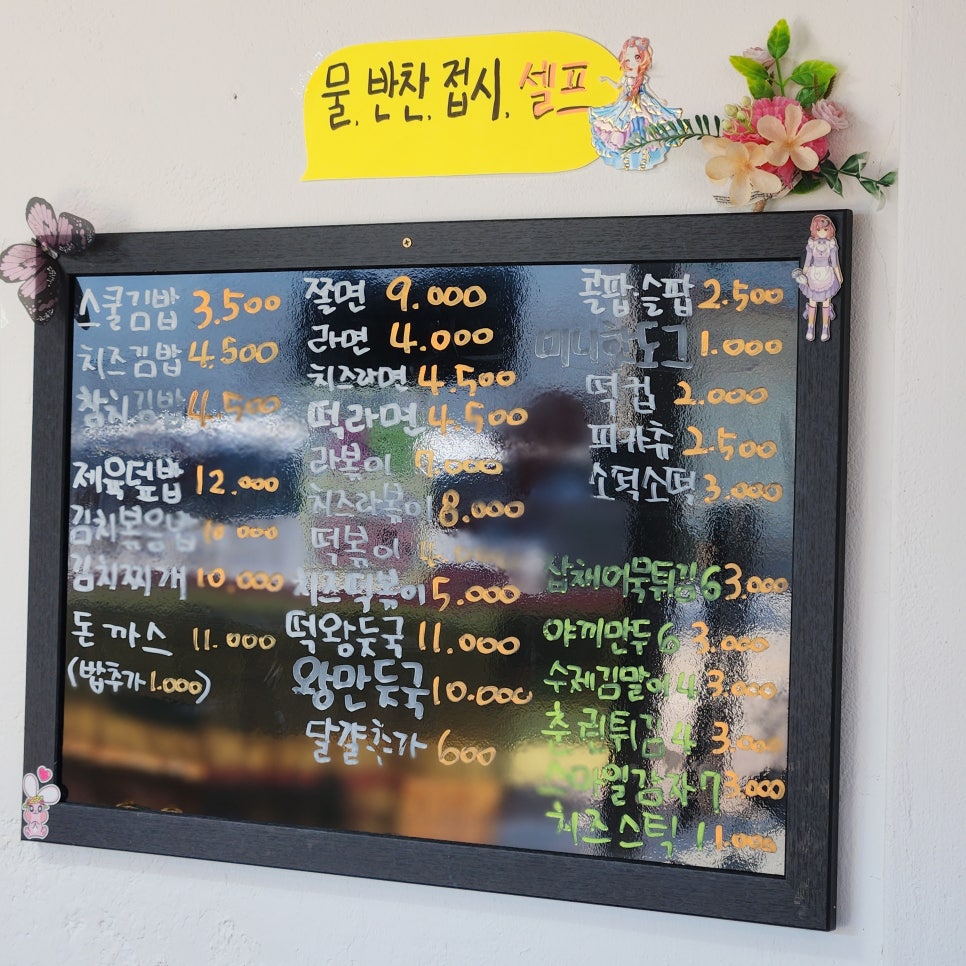 물. 반찬. 접시. 셀프
스쿨김밥 3.500
치즈김밥 4.500
참치김밥 4.500
제육덮밥 12.000
김치볶음밥 10.000
김치찌개 10.000
돈까스 11.000
(밥추가 1.000)
쫄면 9.000
라면 4.000
치즈라면 4.500
떡라면 4.500
라볶이 7.000
치즈라볶이 8.000
떡볶이
치즈떡볶이 5.000
떡왕듯국 11.000
왕만듯국 10.000
달걀추가 600
콜팝·슬팝 2.500
미니핫도그 1.000
떡컵 2.000
피카츄 2.500
소떡소떡 3.000
삽채어묵튀김 6 3.000
야끼만두 6 3.000
수제김말이 4 3.000
춘권튀김 4 3.000
스마일감자 7 3.000
치즈스틱 1 1.000